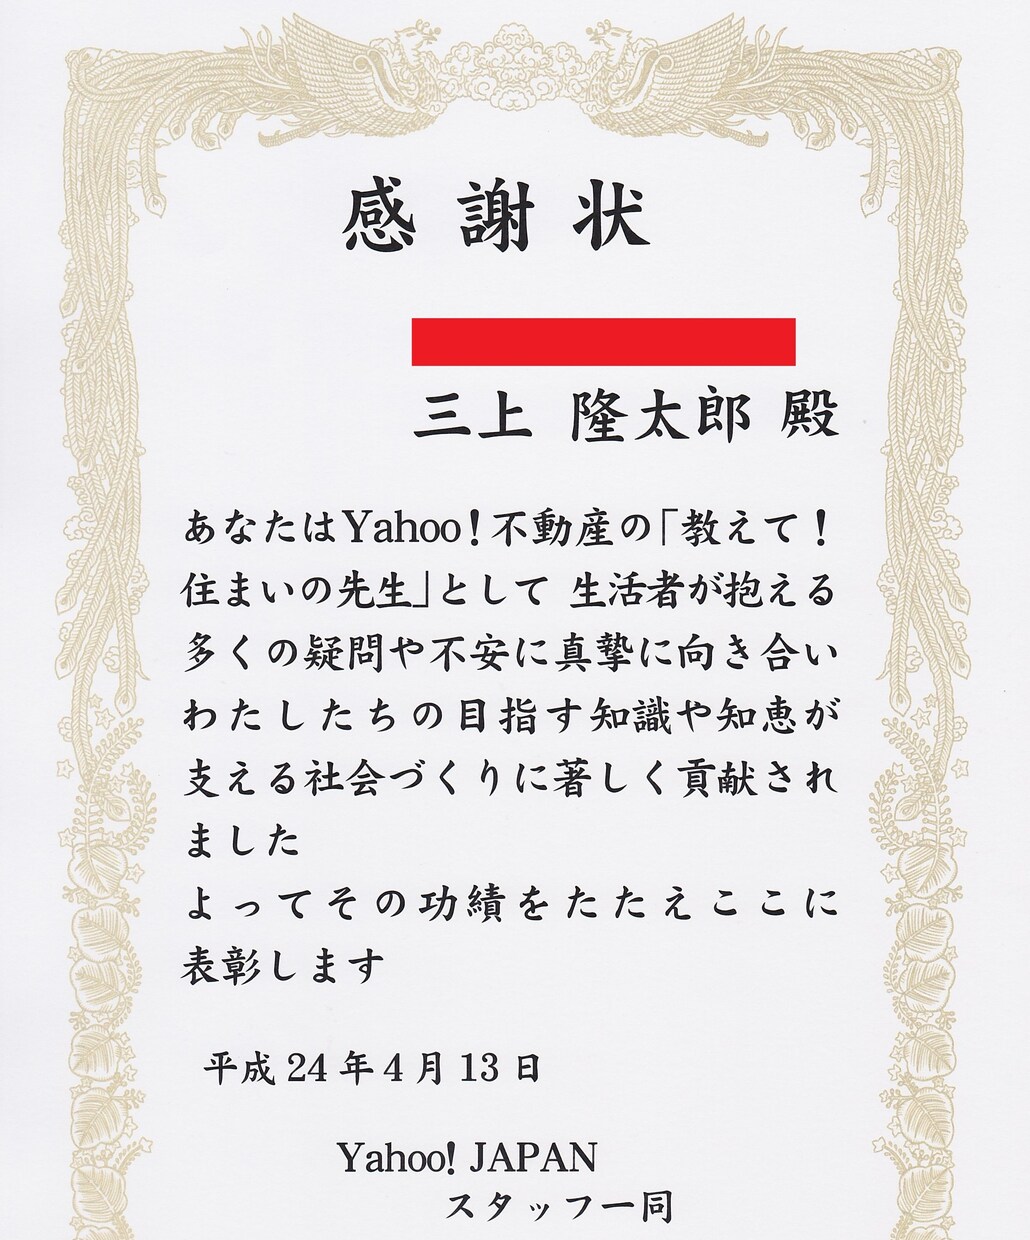 感謝状
三上 隆太郎 殿
あなたはYahoo!不動産の「教えて!
住まいの先生」として 生活者が抱える
多くの疑問や不安に真摯に向き合い
わたしたちの目指す知識や知恵が
支える社会づくりに著しく貢献され
ました
よってその功績をたたえここに
表彰します
平成 24 年 4 月 13 日
Yahoo! JAPAN
スタッフ一同